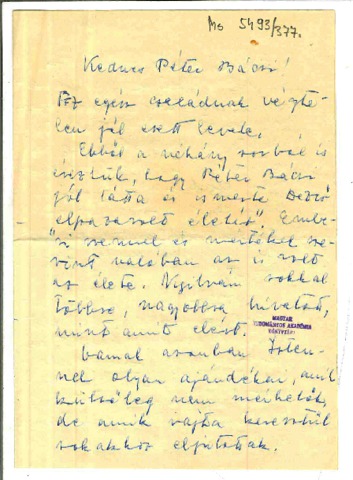 Ms 5493/377.
Kedves Péter Bácsi!
Az egész családnak végte-
len jól esett levele.
Ebből a néhány sorból is
éreztük, hogy Péter Bácsi
jól látta és ismerte Dezső
"elpazarolt életét". Embe-
ri szemmel és mértékkel sze-
rint valóban az is volt
az élete. Nyilván sokkal
többre, nagyobbra hivatott,
mint amit elért.
MAGYAR
TUDOMÁNYOS AKADÉMIA
KÖNYVTÁRA
Vannak azonban Isten-
nek olyan ajándékai, amik
külsőleg nem mérhetők,
de amik rajta keresztül
sokakhoz eljutottak.